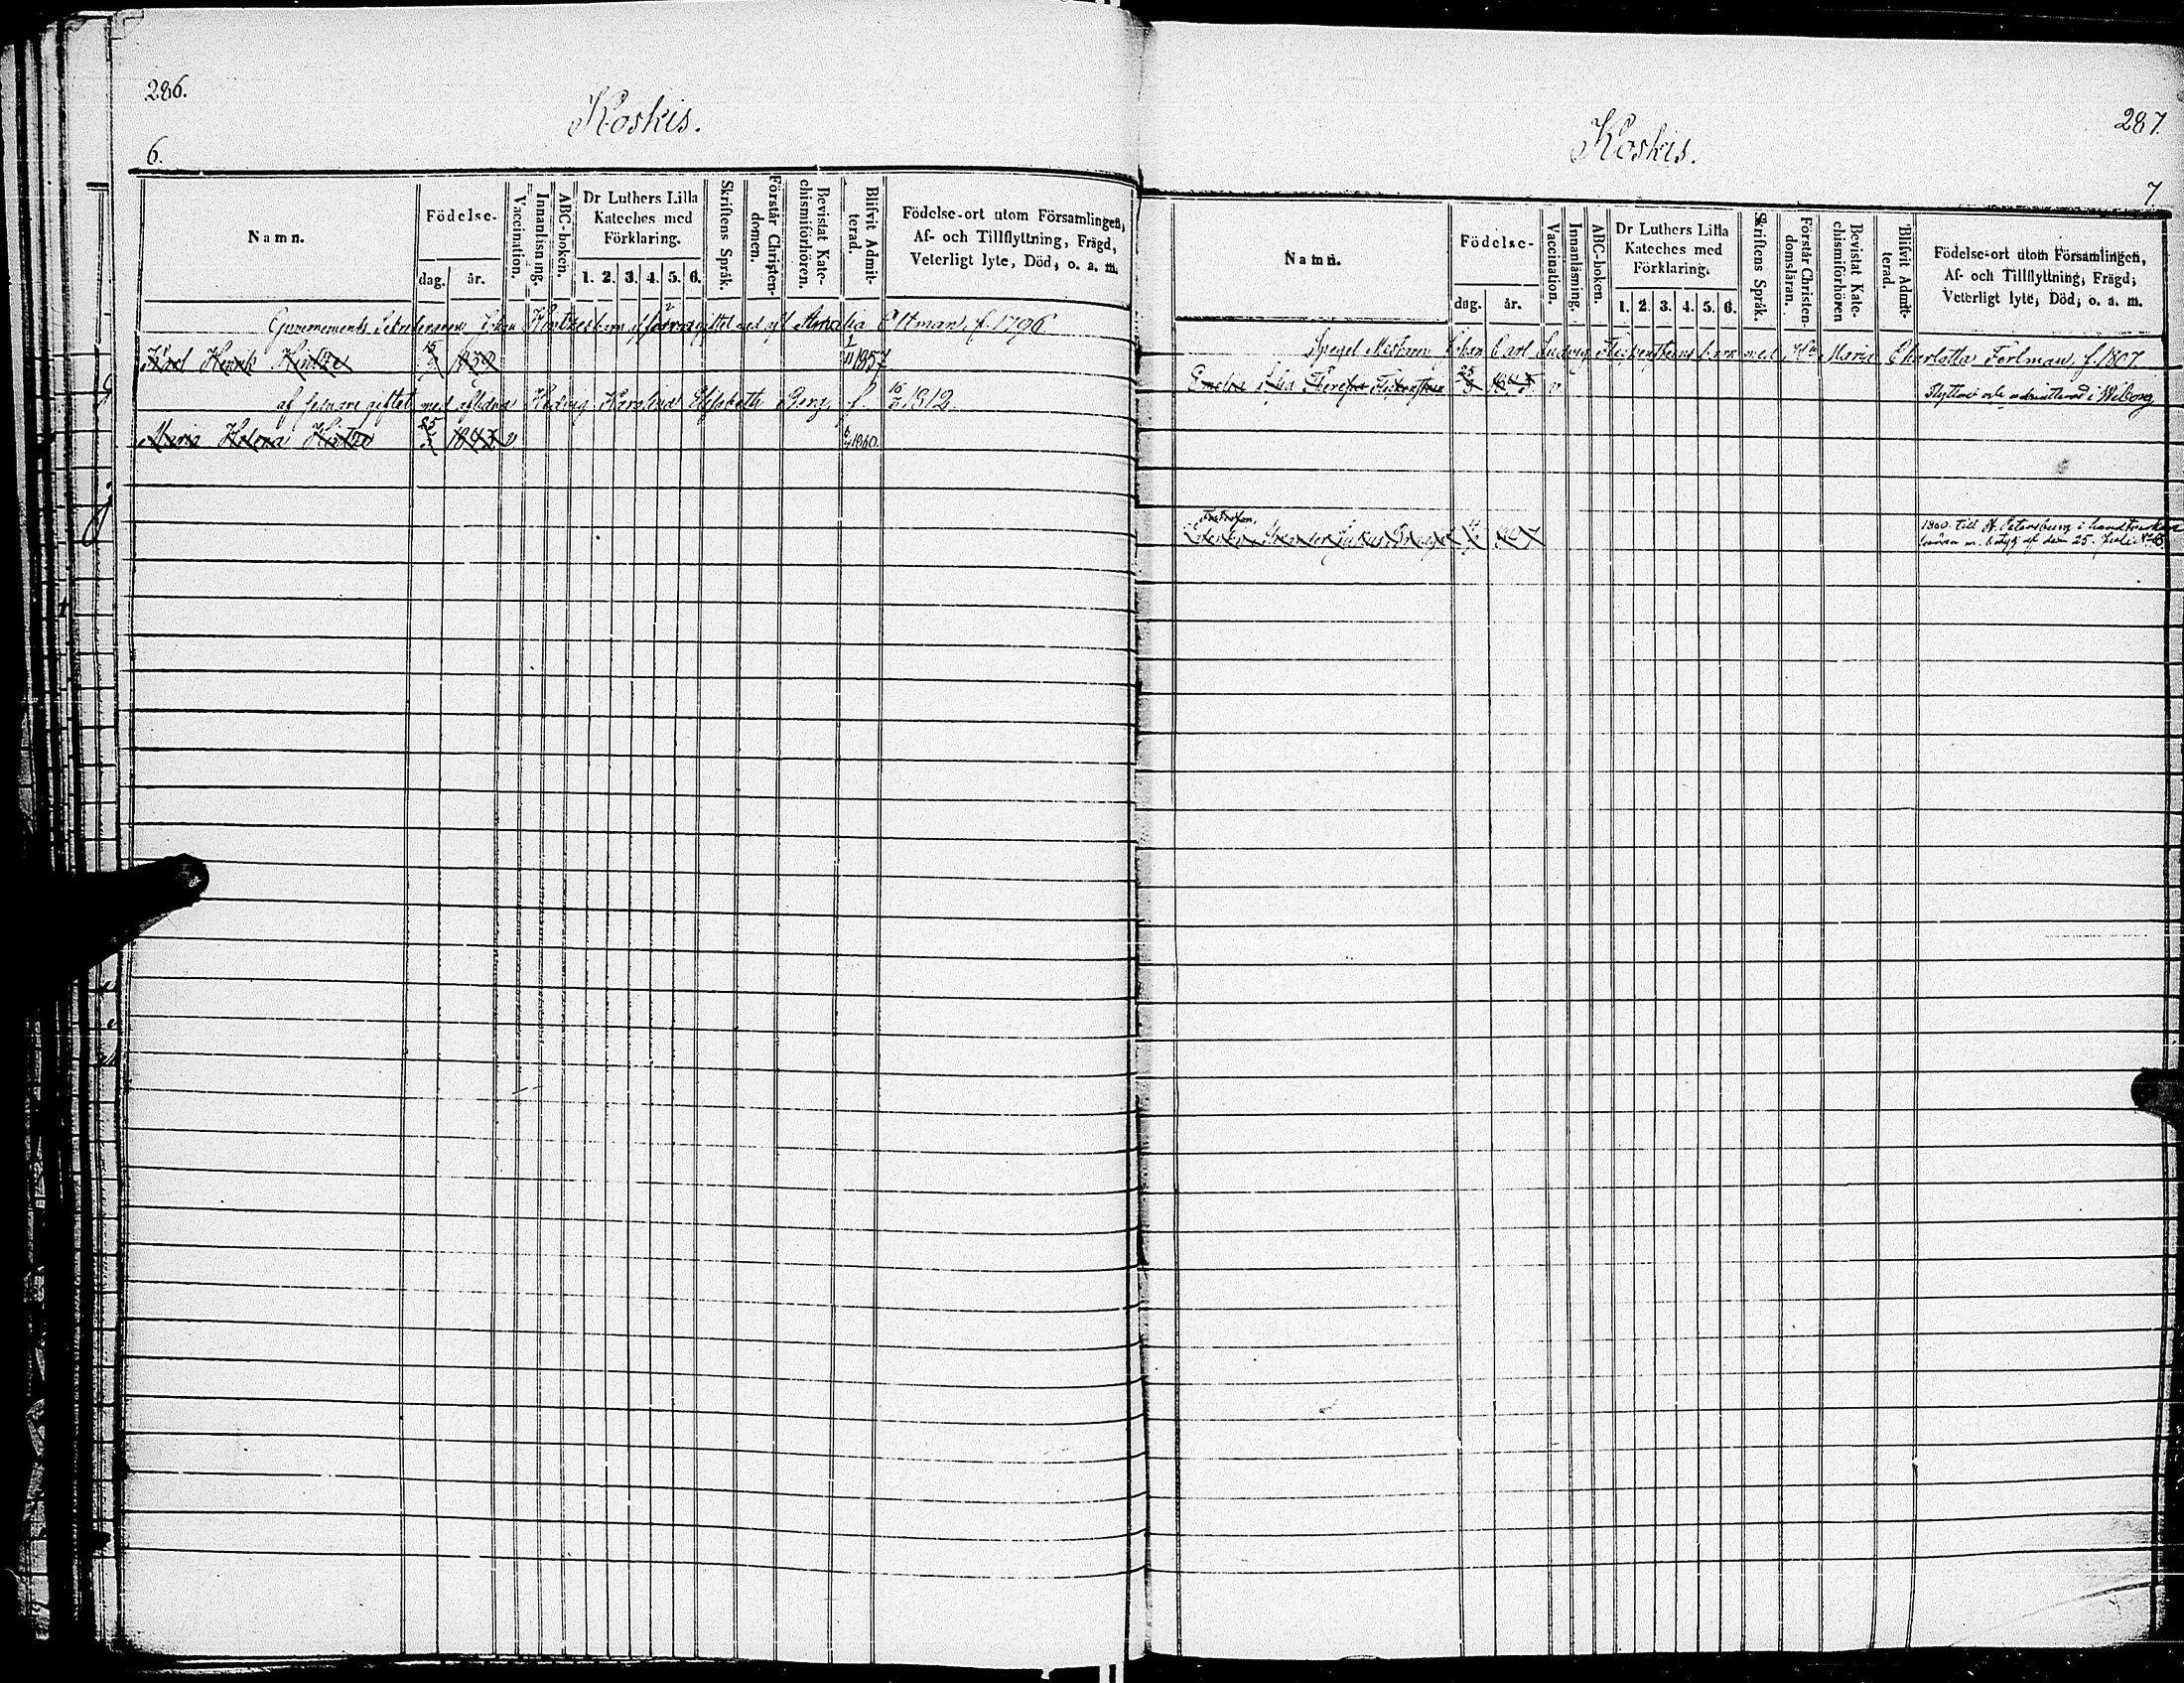 286.
Koskis.
6.
Namn.
Födelse-
dag. år.
Vaccination.
Innanläsning.
ABC-boken.
Dr Luthers Lilla
Kateches med
Förklaring.
1. 2. 3. 4. 5. 6.
Skriftens Språk.
Förstår Christen-
domen.
Bevistat Kate-
chismiförhören.
Blifvit Admit-
terad.
Födelse-ort utom Församlingen,
Af- och Tillflyttning, Frägd,
Veterligt lyte, Död, o. a. m.
Guvernements Sekreteraren Johan Hintzes barn giftet med Amalia Eltman, f. 1796
Karl Henrik Hintze 15 1857
af giftet med aflidna Hedvig Karolina Elisabeth Berg, f. 1812.
Maria Helena Hintze 25 1843 v 1860.
287.
Koskis.
7
Namn.
Födelse-
dag. år.
Vaccination.
Innanläsning.
ABC-boken.
Dr Luthers Lilla
Kateches med
Förklaring.
1. 2. 3. 4. 5. 6.
Skriftens Språk.
Förstår Christen-
domsläran.
Bevistat Kate-
chismiförhören
Blifvit Admit-
terad.
Födelse-ort utom Församlingen,
Af- och Tillflyttning, Frägd,
Veterligt lyte, Död, o. a. m.
Johan Carl Ludvig barn med Maria Charlotta Forlman, f. 1807.
Emelia 25 v Flyttat och admitterad i Wiborg
1860 till St. Petersburg i handtverks
lära m. betyg af den 25. Juli